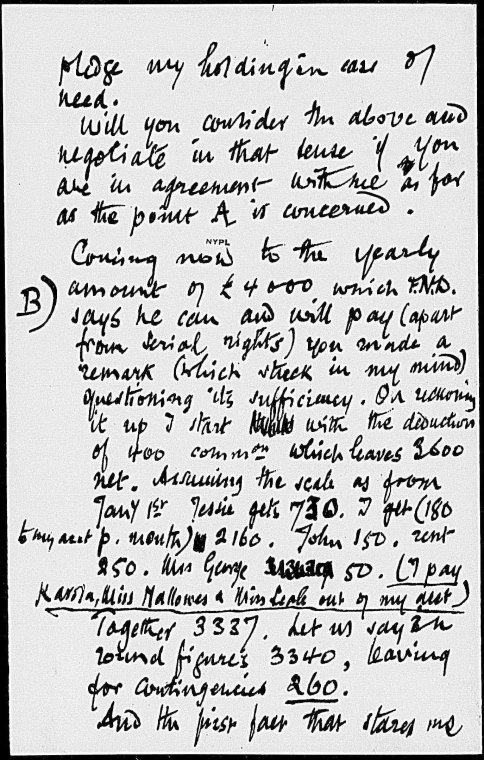 pledge my holding in case of
need.
Will you consider the above and
negotiate in that sense if you
are in agreement with me as far
as the point A is concerned.
NYPL
Coming now to the yearly
B) amount of £4000 which F.N.D.
says he can and will pay (apart
from serial rights) you made a
remark (which stuck in my mind)
questioning its sufficiency. On reckoning
it up I start with the deduction
of 400 common which leaves 3600
net. Assuming the scale as from
Jany 1st Jessie gets 730. I get (180
to my acct p. month) 2160. John 150. rent
250. Mrs George 50. (I pay
Karola, Miss Hallowes & Miss Seale out of my acct)
Together 3337. Let us say in
round figures 3340, leaving
for contingencies 260.
And the first fact that stares me